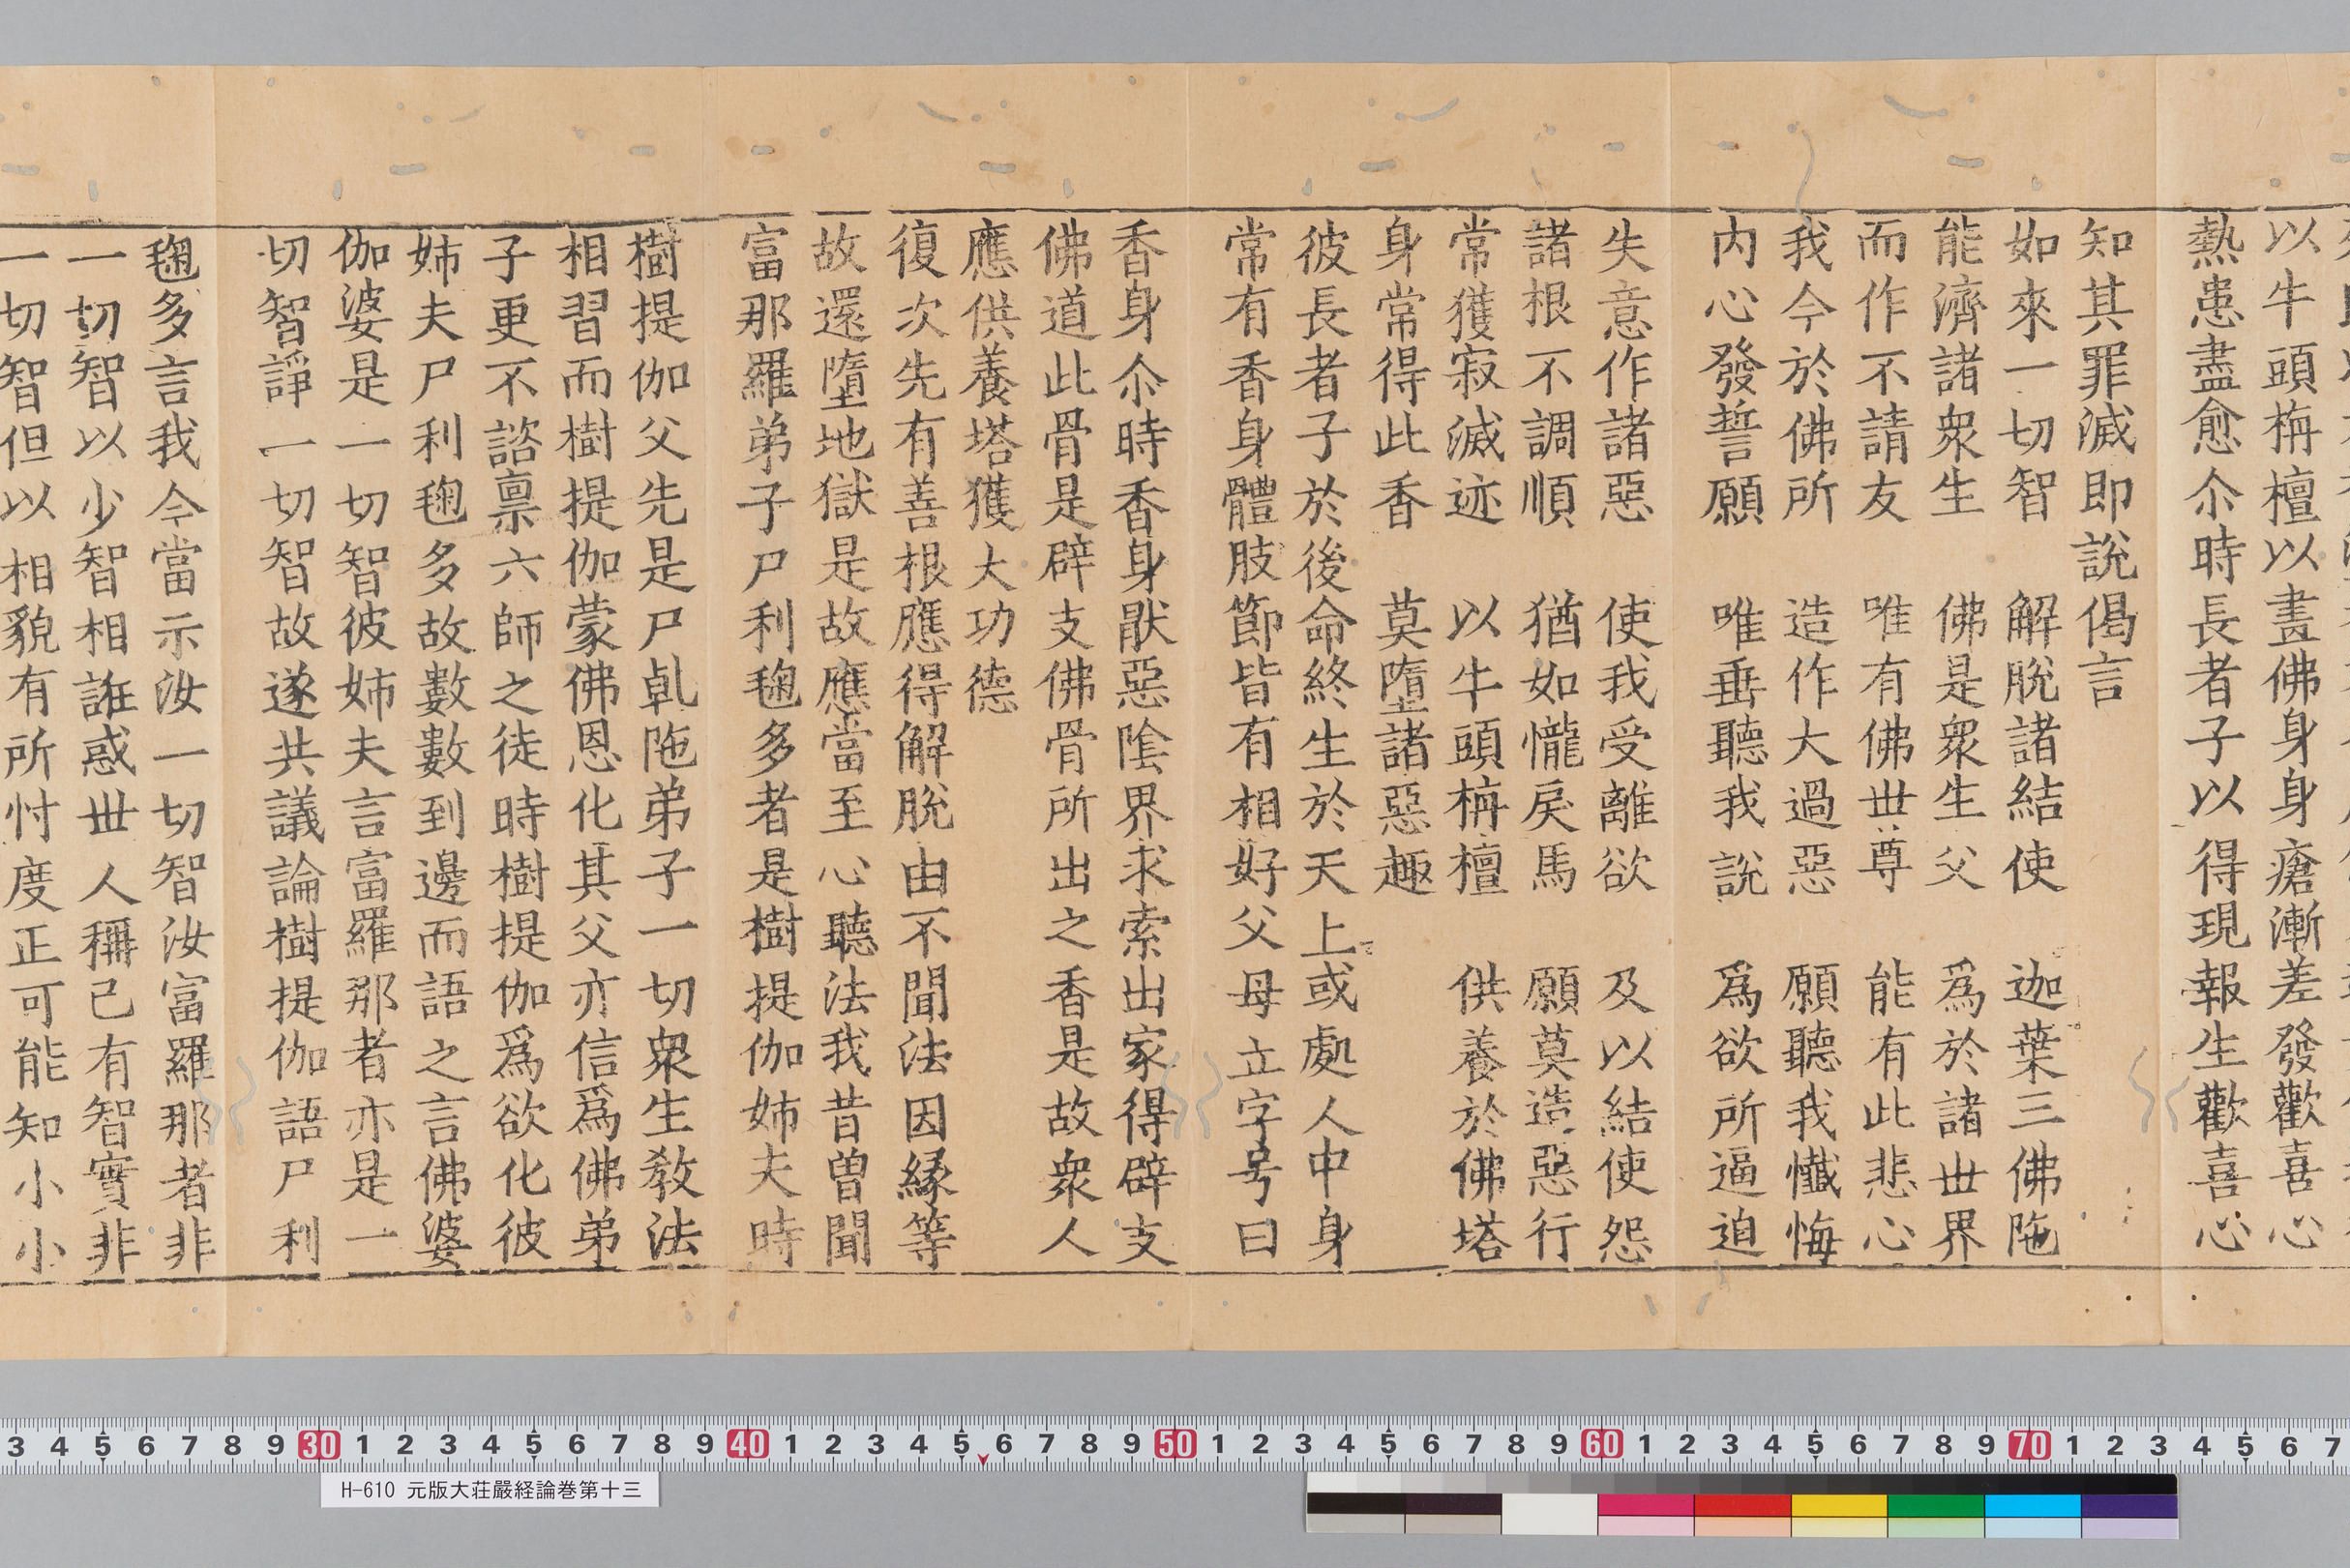 以牛頭栴檀以畫佛身身瘡漸差發歡喜心
熱患盡愈尒時長者子以得現報生歡喜心
知其罪滅即説偈言
如來一切智　解脫諸結使　迦葉三佛陁
能濟諸衆生　佛是衆生父　爲於諸丗界
而作不請友　唯有佛丗尊　能有此悲心
我今於佛所　造作大過惡　願聽我懺悔
内心發誓願　唯垂聽我説　爲欲所逼迫
失意作諸惡　使我受離欲　及以結使怨
諸根不調順　猶如㦬戾馬　願莫造惡行
常獲寂滅迹　以牛頭栴檀　供養於佛塔
身常得此香　莫墮諸惡趣
彼長者子於後命終生於天上或處人中身
常有香身體肢節皆有相好父母立字号曰
香身尒時香身猒惡陰界求索出家得辟支
佛道此骨是辟支佛骨所出之香是故衆人
應供養塔獲大功德
復次先有善根應得解脫由不聞法因縁等
故還墮地獄是故應當至心聽法我昔曾聞
富那羅弟子尸利毱多者是樹提伽姊夫時
樹提伽父先是尸乹陁弟子一切衆生教法
相習而樹提伽蒙佛恩化其父亦信爲佛弟
子更不諮禀六師之徒時樹提伽爲欲化彼
姊夫尸利毱多故數數到邊而語之言佛婆
伽婆是一切智彼姊夫言富羅那者亦是一
切智諍一切智故遂共議論樹提伽語尸利
毱多言我今當示汝一切智汝富羅那者非
一切智以少智相誑惑丗人稱己有智實非
一切智但以相貌有所忖度正可能知小小
3 4 5 6 7 8 9 30 1 2 3 4 5 6 7 8 9 40 1 2 3 4 5 6 7 8 9 50 1 2 3 4 5 6 7 8 9 60 1 2 3 4 5 6 7 8 9 70 1 2 3 4 5 6 7
H-610 元版大荘嚴経論巻第十三